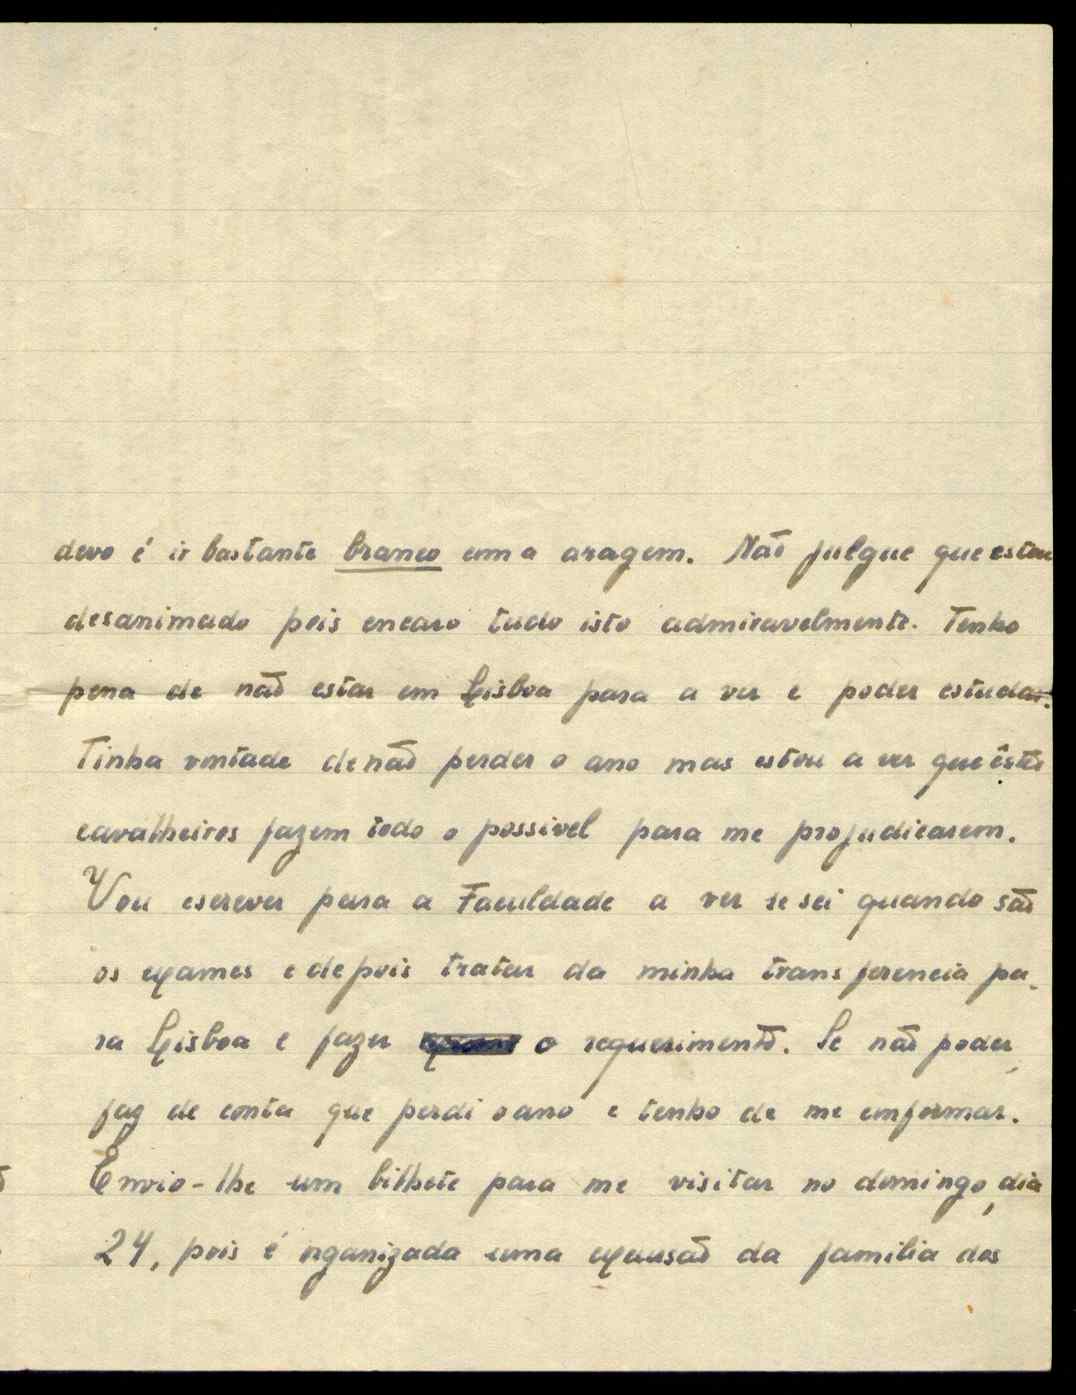 devo é ir bastante branco com a aragem. Não julgue que estou
desanimado pois encaro tudo isto admiravelmente. Tenho
pena de não estar em Lisboa para a ver e poder estudar.
Tinha vontade de não perder o ano mas estou a ver que êstes
cavalheiros fazem todo o possivel para me projudicarem.
Vou escrever para a Faculdade a ver se sei quando são
os exames e depois tratar da minha transferencia pa-
ra Lisboa e fazer o requerimento. Se não poder,
faz de conta que perdi o ano e tenho de me comformar.
Envio-lhe um bilhete para me visitar no domingo, dia
24, pois é organizada uma excursão da familia dos